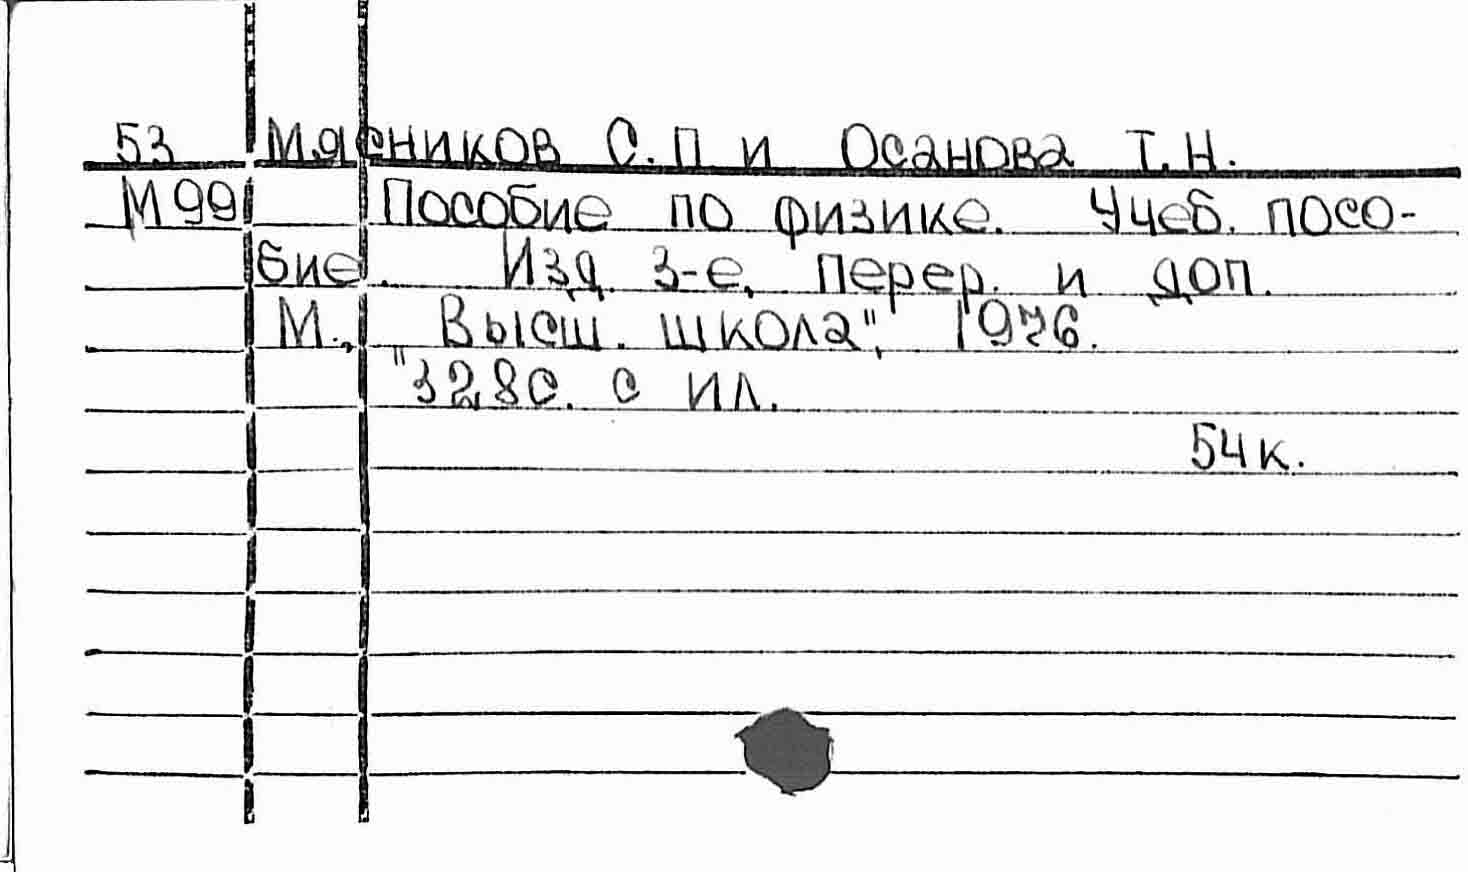 53 Мясников С.П и Осанова Т.Н.
М99 Пособие по физике. Учеб. посо-
бие. Изд. 3-е, перер. и доп.
М., "Высш. школа", 1976.
328с. с ил.
54к.